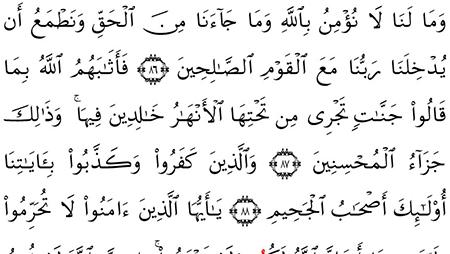 وَمَا لَنَا لَا نُؤْمِنُ بِٱللَّهِ وَمَا جَآءَنَا مِنَ ٱلْحَقِّ وَنَطْمَعُ أَن
يُدْخِلَنَا رَبُّنَا مَعَ ٱلْقَوْمِ ٱلصَّـٰلِحِينَ ٨٦ فَأَثَـٰبَهُمُ ٱللَّهُ بِمَا
قَالُوا۟ جَنَّـٰتٍ تَجْرِى مِن تَحْتِهَا ٱلْأَنْهَـٰرُ خَـٰلِدِينَ فِيهَا ۚ وَذَٰلِكَ
جَزَآءُ ٱلْمُحْسِنِينَ ٨٧ وَٱلَّذِينَ كَفَرُوا۟ وَكَذَّبُوا۟ بِـَٔايَـٰتِنَا
أُو۟لَـٰٓئِكَ أَصْحَـٰبُ ٱلْجَحِيمِ ٨٨ يَـٰٓأَيُّهَا ٱلَّذِينَ ءَامَنُوا۟ لَا تُحَرِّمُوا۟